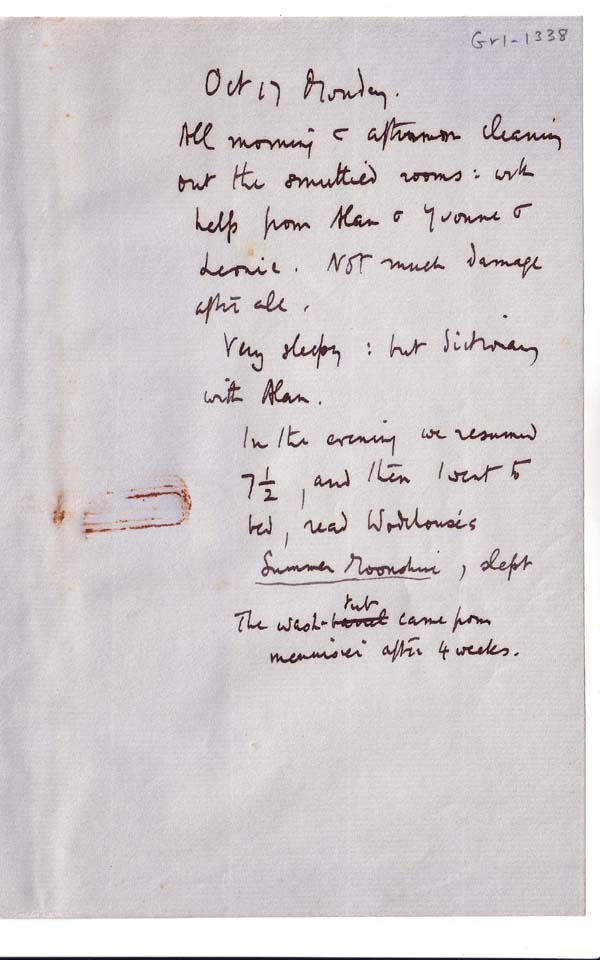 Gr1-1338
Oct 17 Monday.
All morning & afternoon cleaning
out the smuttied rooms: with
help from Alan & Yvonne &
Leonie. Not much damage
after all.
Very sleepy: but dictionary
with Alan.
In the evening we resumed
7½, and then I went to
bed, read Wodehouse's
Summer Moonshine, slept
The wash-barrel tub came from
menuisier after 4 weeks.